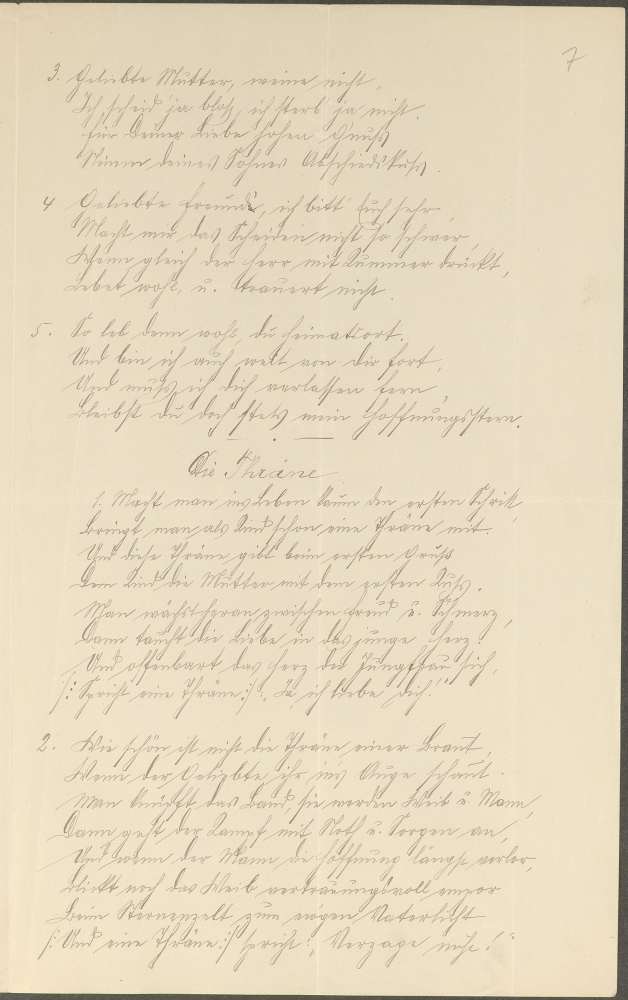 7
3. Geliebte Mutter, weine nicht,
Ich scheid' ja blos, ich sterb' ja nicht.
Für Deiner Liebe hohen Gnuß
Nimm deines Sohnes Abschiedskuß.
4 Geliebte Freunde, ich bitt' Euch sehr,
Macht mir das Scheiden nicht so schwer,
Wenn gleich der Herr mit Kummer drückt,
Lebet wohl, u. trauert nicht.
5. So leb denn wohl, du Heimatsort.
Und bin ich auch weit von dir fort,
Und muß ich dich verlassen fern,
Bleibst du doch stets mein Hoffnungsstern.
Die Thräne.
1. Macht man ins Leben kaum den ersten Schritt,
Bringt man als Kind schon eine Thräne mit.
Und diese Thräne gibt beim ersten Gruß
Dem Kind die Mutter mit dem ersten Kuß.
Man wächst heran zwischen Freud u. Schmerz,
Dann taucht die Liebe in das junge Herz.
Und offenbart das Herz der Jungfrau sich,
/: Spricht eine Thräne :/ „Ja, ich liebe dich!"
2. Wie schön ist nicht die Thräne einer Braut,
Wenn der Geliebte ihr ins Auge schaut.
Man knüpft das Band, sie werden Weib u. Mann,
Dann geht der Kampf mit Noth u. Sorgen an,
Und wenn der Mann die Hoffnung längst verlor,
Blickt noch das Weib vertrauungsvoll empor
Beim Sternenzelt zum ewigen Vaterlicht
/: Und eine Thräne :/ spricht: „Verzage nicht!"